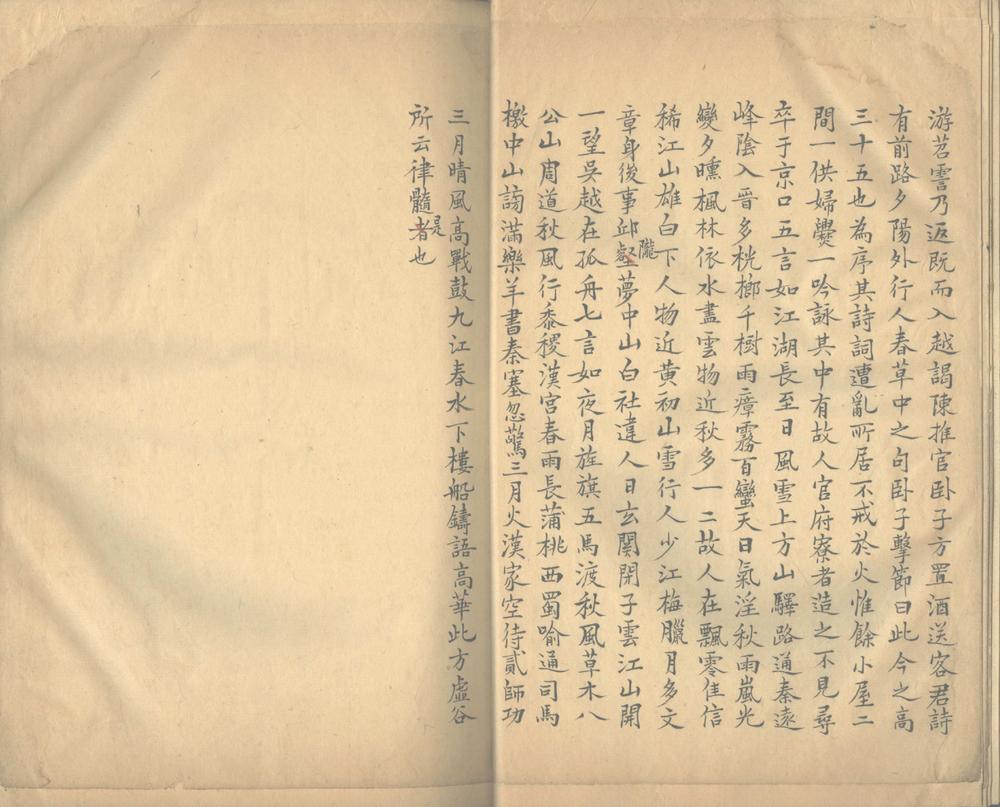 游苕霅乃返既而入越謁陳推官卧子方置酒送客君詩
有前路夕陽外行人春草中之句卧子擊節曰此今之高
三十五也為序其詩詞遭亂所居不戒於火惟餘小屋二
間一供婦爨一吟詠其中有故人官府寮者造之不見尋
卒于京口五言如江湖長至日風雪上方山驛路通秦遠
峰陰入晉多桄榔千樹雨瘴霧百蠻天日氣淫秋雨嵐光
變夕曛楓林依水盡雲物近秋多一二故人在飄零佳信
稀江山雄白下人物近黄初山雪行人少江梅臘月多文
章身後事邱壑隴夢中山白社違人日玄関閉子雲江山開
一望吳越在孤舟七言如夜月旌旗五馬渡秋風草木八
公山周道秋風行黍稷漢宮春雨長蒲桃西蜀喻通司馬
檄中山謗滿樂羊書秦塞忽驚三月火漢家空待貳師功
三月晴風高戰鼓九江春水下樓船鑄語高華此方虛谷
所云律髓者是也